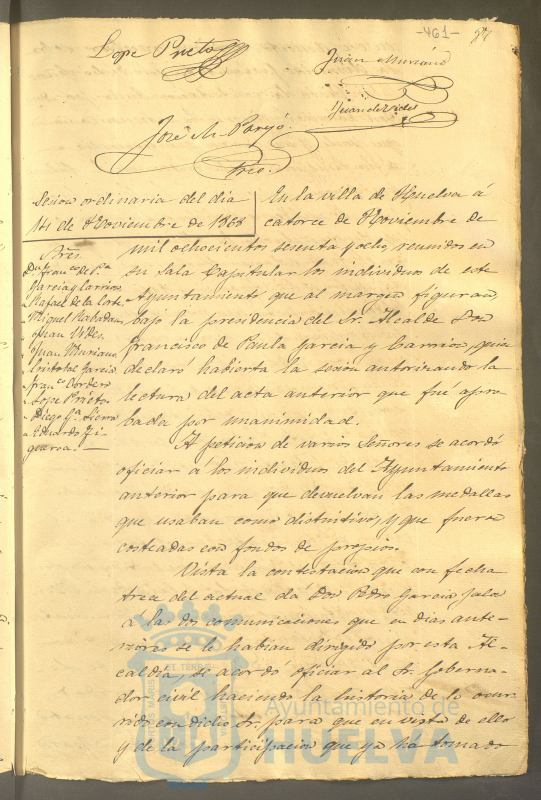 -461-
Lope Prieto
Juan Muriano
Juan de Vides
José M. Parejo.
Srio.
Sesion ordinaria del dia
14 de Noviembre de 1868
Sres.
Dn. Franco. de P.a
Garcia y Barrios
" Rafael de la Corte
" Miguel Rabadan
" Juan Vides
" Juan Muriano
" Cristobal Garcia
" Franco. Cordero
" Lope Prieto
" Diego Ga. Sierra
" Eduardo Fi-
gueroa.
En la villa de Huelva á
catorce de Noviembre de
mil ochocientos sesenta y ocho, reunidos en
su Sala Capitular los individuos de este
Ayuntamiento que al margen figuran,
bajo la presidencia del Sr. Alcalde Don
Francisco de Paula Garcia y Barrios, quien
declaró habierta la sesion autorizando la
lectura del acta anterior que fué apro-
bada por unanimidad.
A peticion de varios Señores se acordó
oficiar á los individuos del Ayuntamiento
anterior para que devuelvan las medallas
que usaban como distintivo, y que fueron
costeadas con fondos de propios.
Vista la contestacion que con fecha
trece del actual dá Don Pedro Garcia Jalon
á las dos comunicaciones que en dias ante-
riores se le habian dirigido por esta Al-
caldía, se acordó oficiar al Sr. Goberna-
dor civil haciendo la historia de lo ocur-
rido con dicho Sr. para que en vista de ello
y de la participacion que ya ha tomado
Ayuntamiento de
HUELVA